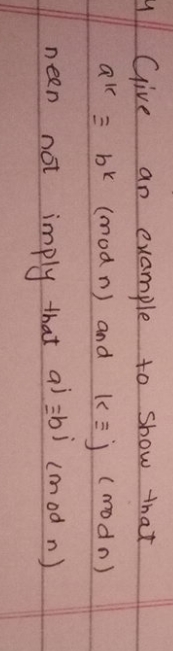 4 Give an example to show that
a^k ≡ b^k (mod n) and k ≡ j (mod n)
neen not imply that a^j ≡ b^j (mod n)